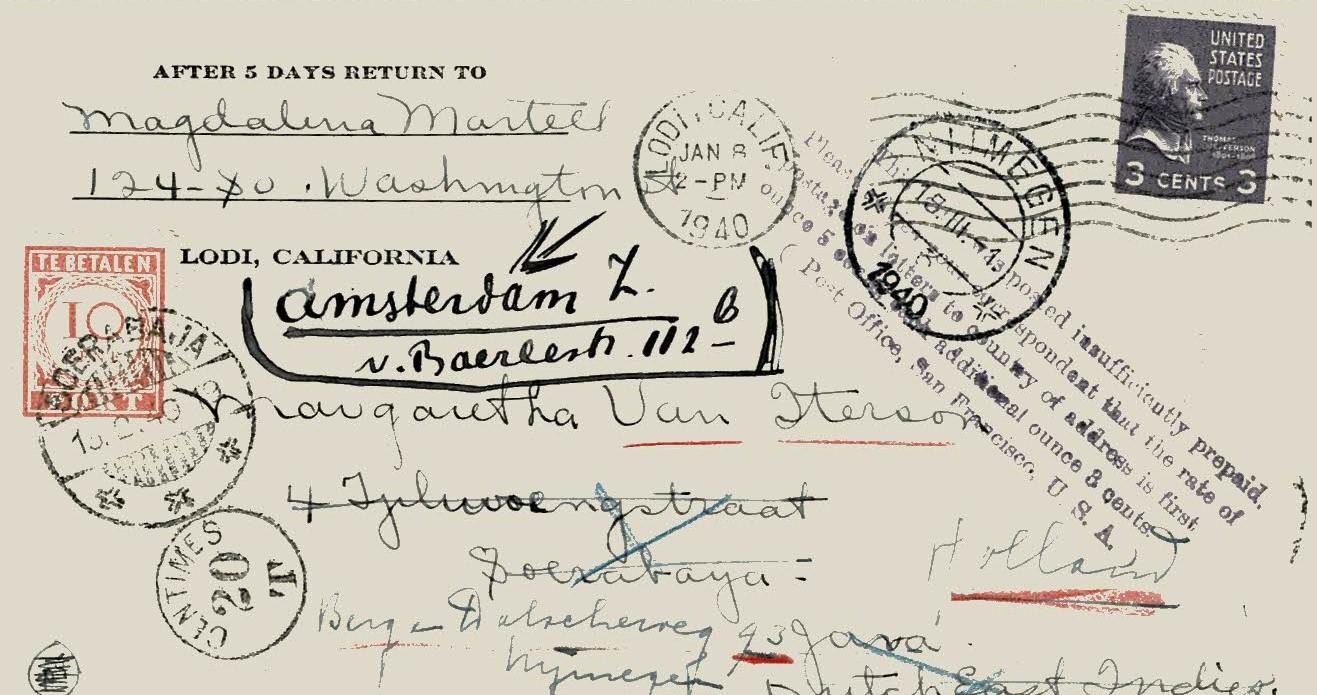 AFTER 5 DAYS RETURN TO
Magdalena Martell
124-So. Washington St
LODI, CALIFORNIA
LODI, CALIF.
JAN 8
2-PM
1940
UNITED
STATES
POSTAGE
THOMAS
JEFFERSON
3 CENTS 3
NIJMEGEN
18.III.
1940
TE BETALEN
10
PORT
SOERABAJA
13.2.40
CENTIMES
20
T
Amsterdam Z.
v. Baerlestr. 112 B
Margaretha Van Iterson
4 straat
Soerabaya
Java
Dutch East Indies
Holland
Berg en Dalscheweg 93
Nijmegen
Please posted insufficiently prepaid,
correspondent that the rate of
postage on letters to country of address is first
ounce 5 additional ounce 3 cents.
( Post Office, San Francisco, U. S. A.